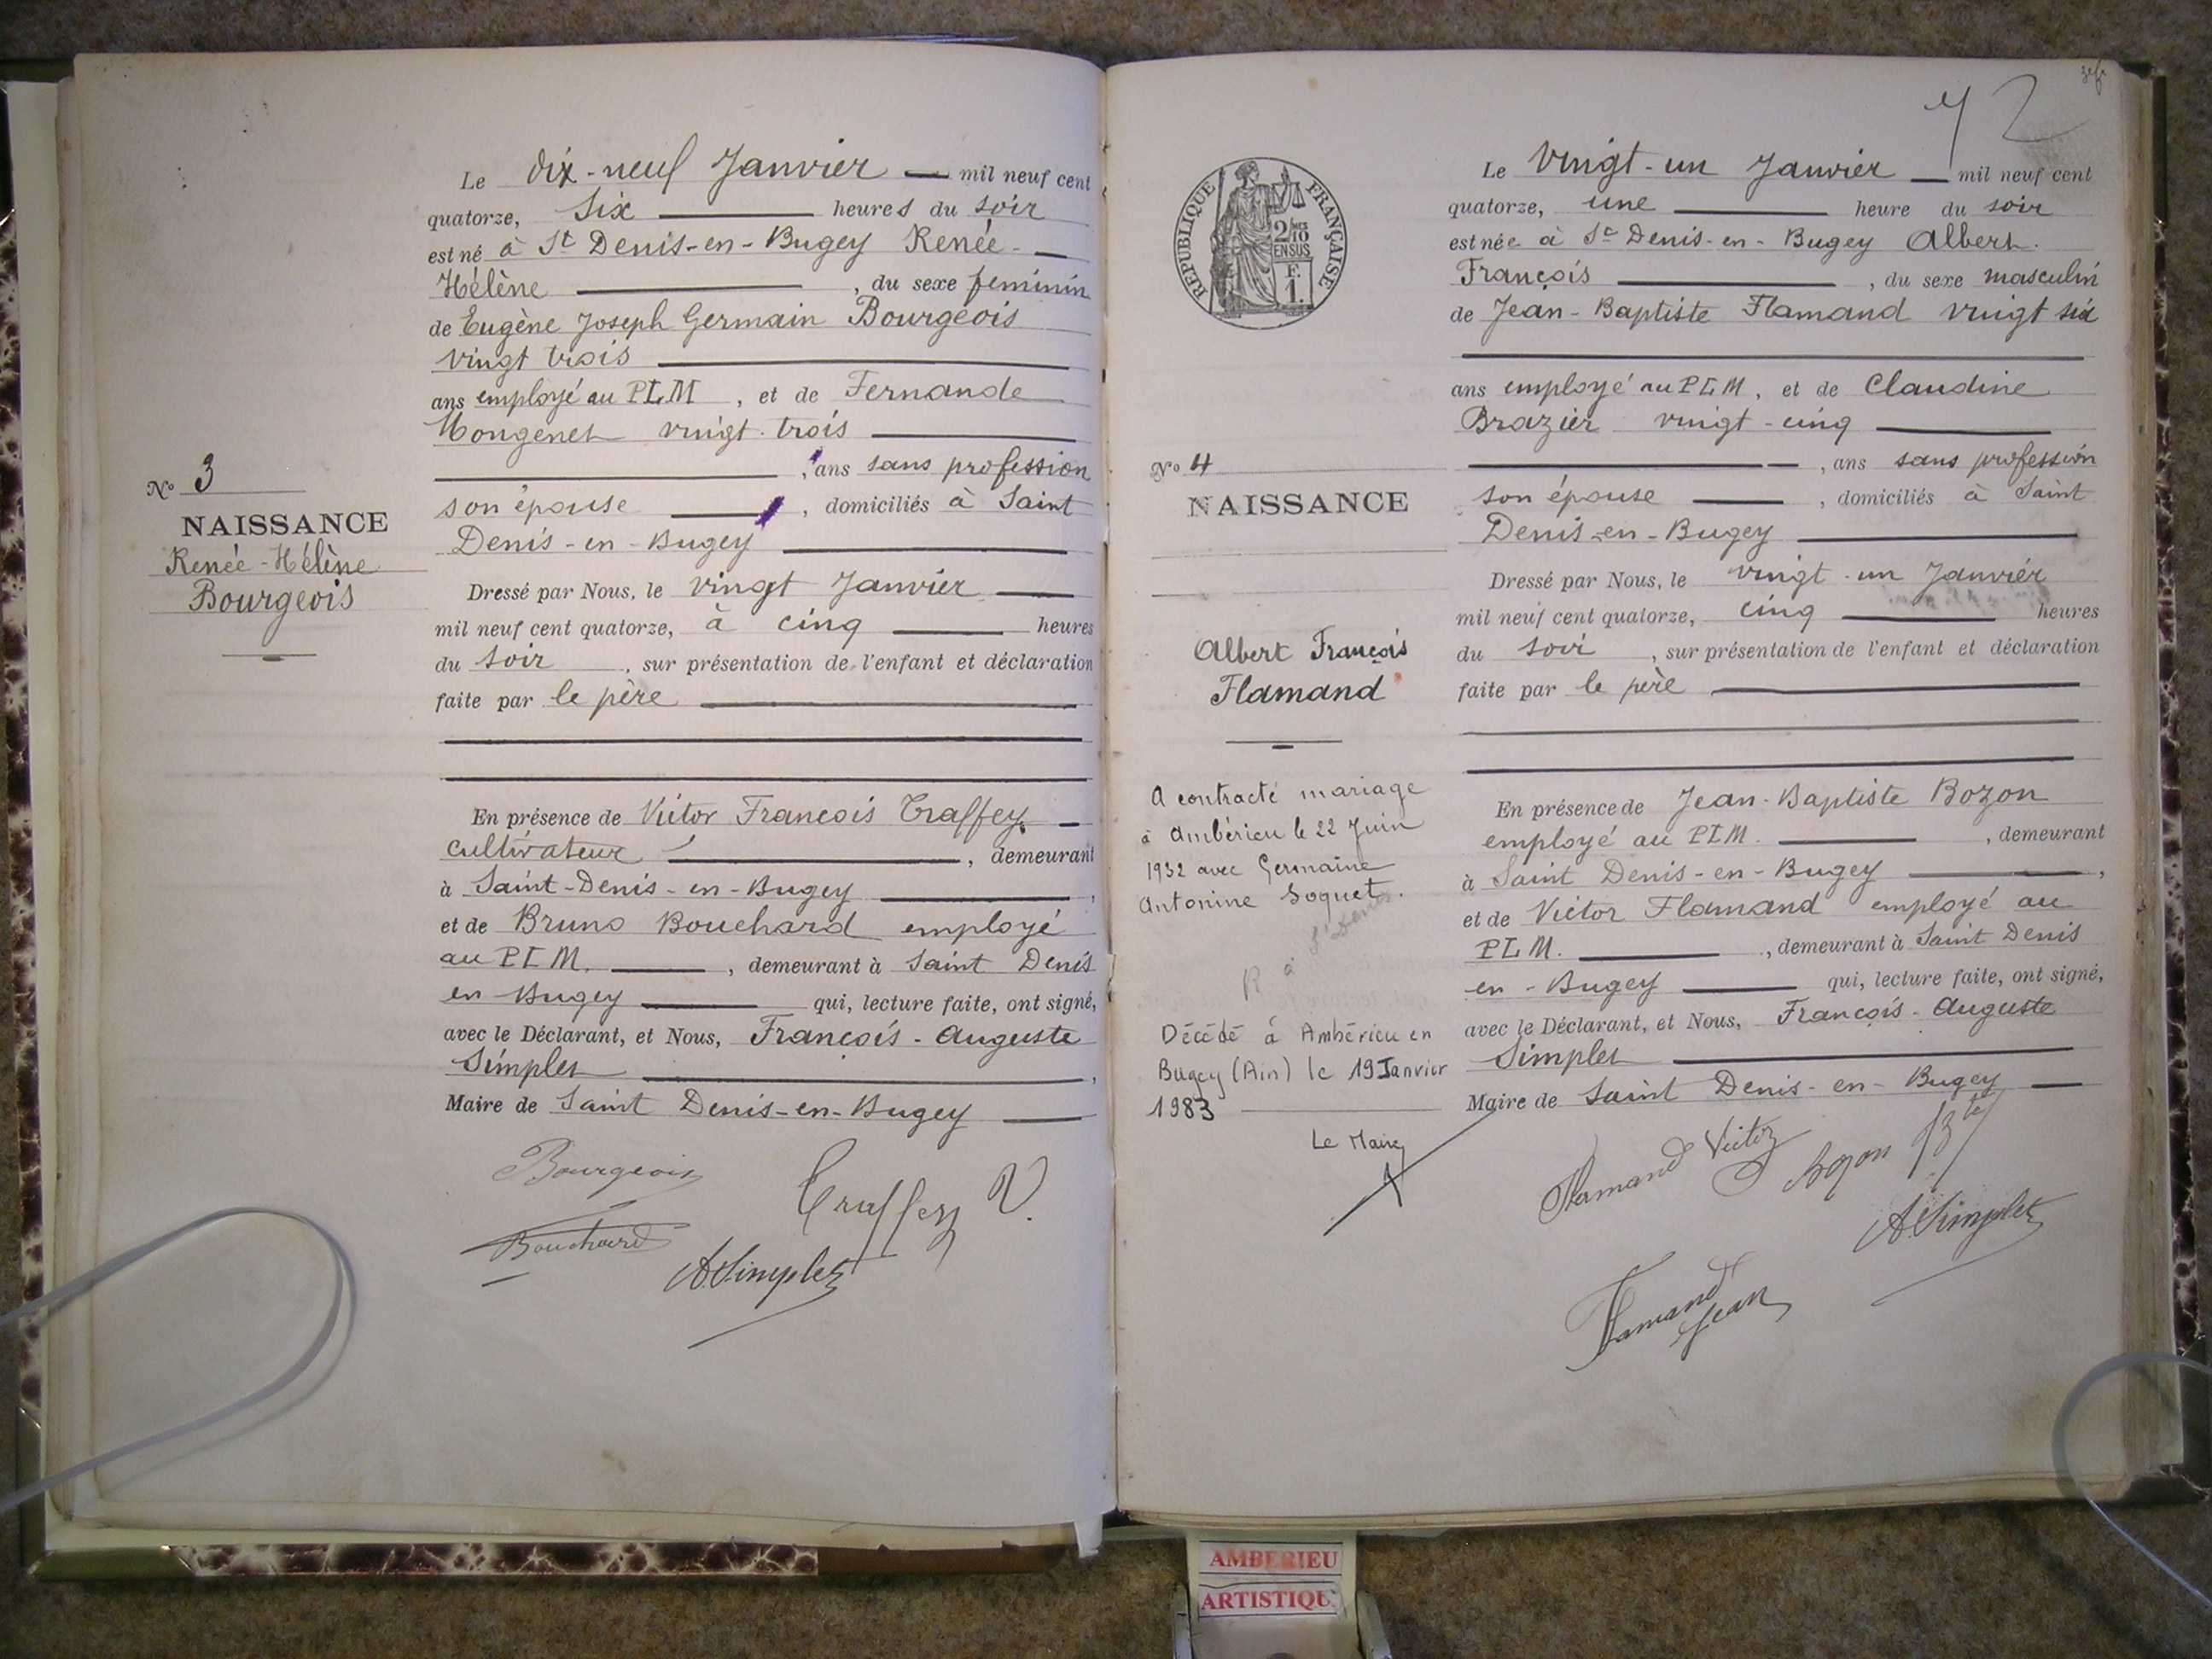 Le dix-neuf Janvier mil neuf cent
quatorze, six heures du soir
est né à St Denis-en-Bugey Renée-
Hélène, du sexe féminin
de Eugène Joseph Germain Bourgeois
vingt trois
ans employé au PLM, et de Fernande
Mongenet vingt-trois
, ans sans profession
son épouse, domiciliés à Saint
Denis-en-Bugey
Dressé par Nous, le vingt Janvier
mil neuf cent quatorze, à cinq heures
du soir, sur présentation de l'enfant et déclaration
faite par le père
En présence de Victor François Traffey
cultivateur, demeurant
à Saint-Denis-en-Bugey,
et de Bruno Bouchard employé
au PLM., demeurant à Saint Denis
en Bugey qui, lecture faite, ont signé,
avec le Déclarant, et Nous, François-Auguste
Simplet,
Maire de Saint Denis-en-Bugey
Bourgeois
Traffey V.
Bouchard
A. Simplet
No 3
NAISSANCE
Renée-Hélène
Bourgeois
72
REPUBLIQUE FRANÇAISE
2/10
EN SUS
F.
1.
Le vingt-un Janvier mil neuf cent
quatorze, une heure du soir
est née à St Denis-en-Bugey Albert.
François, du sexe masculin
de Jean-Baptiste Flamand vingt six
ans employé au PLM, et de Claudine
Brazier vingt-cinq
, ans sans profession
son épouse, domiciliés à Saint
Denis-en-Bugey
Dressé par Nous, le vingt-un Janvier
mil neuf cent quatorze, cinq heures
du soir, sur présentation de l'enfant et déclaration
faite par le père
En présence de Jean-Baptiste Bozon
employé au PLM., demeurant
à Saint Denis-en-Bugey,
et de Victor Flamand employé au
PLM., demeurant à Saint Denis
en-Bugey qui, lecture faite, ont signé,
avec le Déclarant, et Nous, François-Auguste
Simplet
Maire de Saint Denis-en-Bugey
Flamand Victor
Bozon JBte
A. Simplet
Flamand
Jean
No 4
NAISSANCE
Albert François
Flamand
A contracté mariage
à Ambérieu le 22 Juin
1932 avec Germaine
Antonine Soquet.
Décédé à Ambérieu en
Bugey (Ain) le 19 Janvier
1983
Le Maire
AMBERIEU
ARTISTIQU